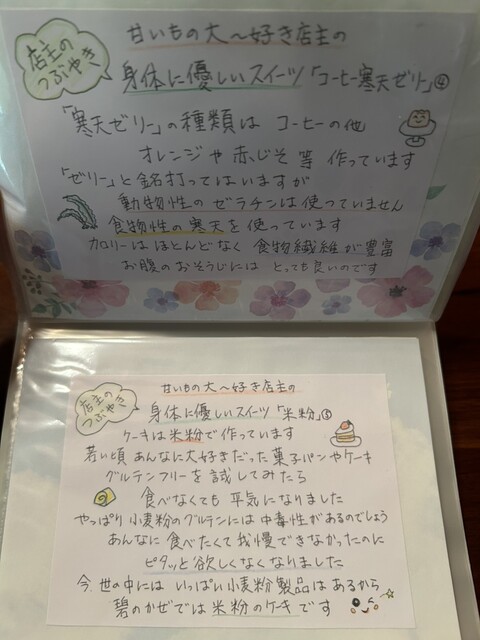 店主の
つぶやき
甘いもの大～好き店主の
身体に優しいスイーツ「コーヒー寒天ゼリー」④
「寒天ゼリー」の種類は コーヒーの他
オレンジや赤じそ等 作っています
「ゼリー」と銘打ってはいますが
動物性のゼラチンは使っていません
食物性の寒天を使っています
カロリーはほとんどなく 食物繊維が豊富
お腹のおそうじには とっても良いのです
店主の
つぶやき
甘いもの大～好き店主の
身体に優しいスイーツ「米粉」⑤
ケーキは米粉で作っています
若い頃 あんなに大好きだった菓子パンやケーキ
グルテンフリーを試してみたら
食べなくても 平気になりました
やっぱり小麦粉のグルテンには中毒性があるのでしょう
あんなに 食べたくて我慢できなかったのに
ピタッと欲しくなくなりました
今、世の中には いっぱい小麦粉製品はあるから
碧のかぜでは 米粉のケーキです